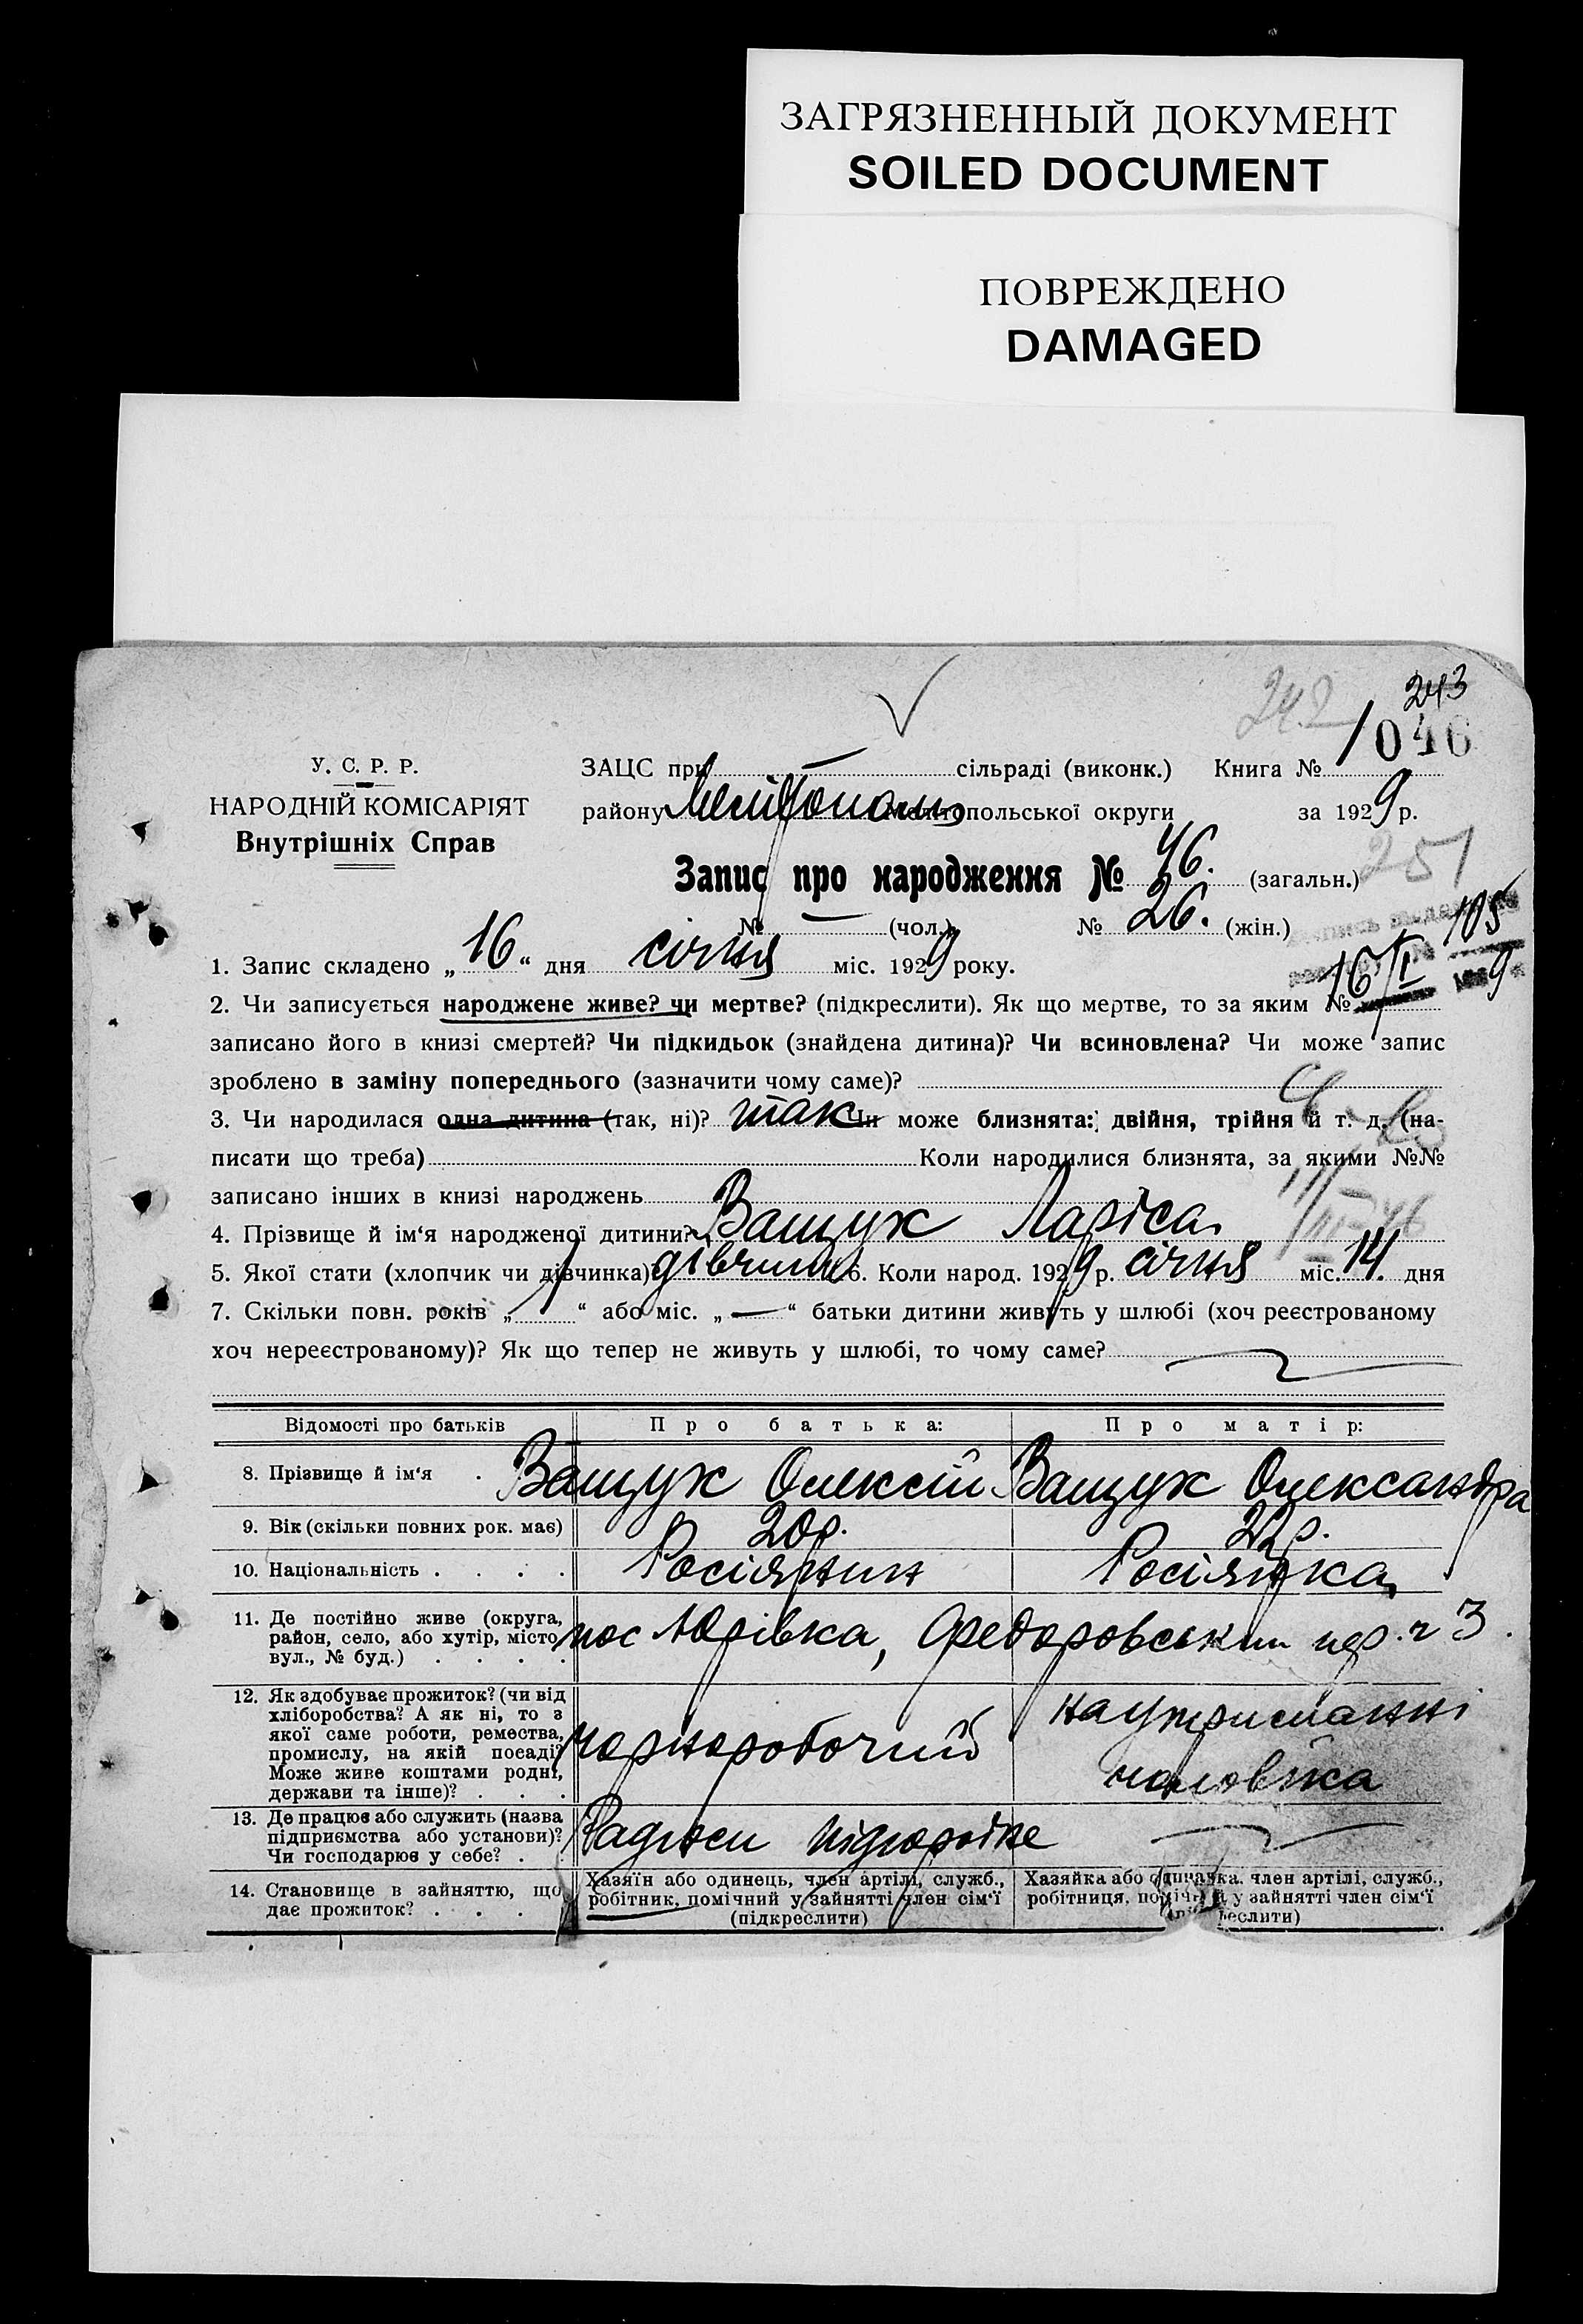 ЗАГРЯЗНЕННЫЙ ДОКУМЕНТ
SOILED DOCUMENT
ПОВРЕЖДЕНО
DAMAGED
242
243
1046
У. С. Р. Р.
НАРОДНІЙ КОМІСАРІЯТ
Внутрішніх Справ
ЗАЦС при — сільраді (виконк.) Книга №
району Мелітополь Мелітопольської округи за 1929 р.
Запис про народження № 46. (загальн.)
251
№ — (чол.) № 26. (жін.)
105
16/I 9
1. Запис складено „16“ дня січня міс. 1929 року.
2. Чи записується народжене живе? чи мертве? (підкреслити). Як що мертве, то за яким №
записано його в книзі смертей? Чи підкидьок (знайдена дитина)? Чи всиновлена? Чи може запис
зроблено в заміну попереднього (зазначити чому саме)?
3. Чи народилася одна дитина (так, ні)? так Чи може близнята: двійня, трійня й т. д. (на-
писати що треба) Коли народилися близнята, за якими №№
записано інших в книзі народжень
4. Прізвище й ім‘я народженої дитини? Ващук Ларіса
5. Якої стати (хлопчик чи дівчинка)? дівчина 6. Коли народ. 1929 р. січня міс. 14. дня
7. Скільки повн. років „1“ або міс. „—“ батьки дитини живуть у шлюбі (хоч реєстрованому
хоч нереєстрованому)? Як що тепер не живуть у шлюбі, то чому саме?
Відомості про батьків Про батька: Про матір:
8. Прізвище й ім‘я Ващук Олексій Ващук Олександра
9. Вік (скільки повних рок. має) 20р. 22р.
10. Національність Росіянин Росіянка
11. Де постійно живе (округа,
район, село, або хутір, місто,
вул., № буд.)
пос Юрівка, Федоровський 3.
12. Як здобуває прожиток? (чи від
хліборобства? А як ні, то з
якої саме роботи, ремества,
промислу, на якій посаді?
Може живе коштами родні,
держави та інше)?
чорноробочий
на утриманні
чоловіка
13. Де працює або служить (назва
підприємства або установи)?
Чи господарює у себе?
14. Становище в зайняттю, що
дає прожиток?
Хазяїн або одинець, член артілі, служб.,
робітник, помічний у зайнятті член сім‘ї
(підкреслити)
Хазяйка або одиначка, член артілі, служб.,
робітниця, помічн. у зайнятті член сім‘ї